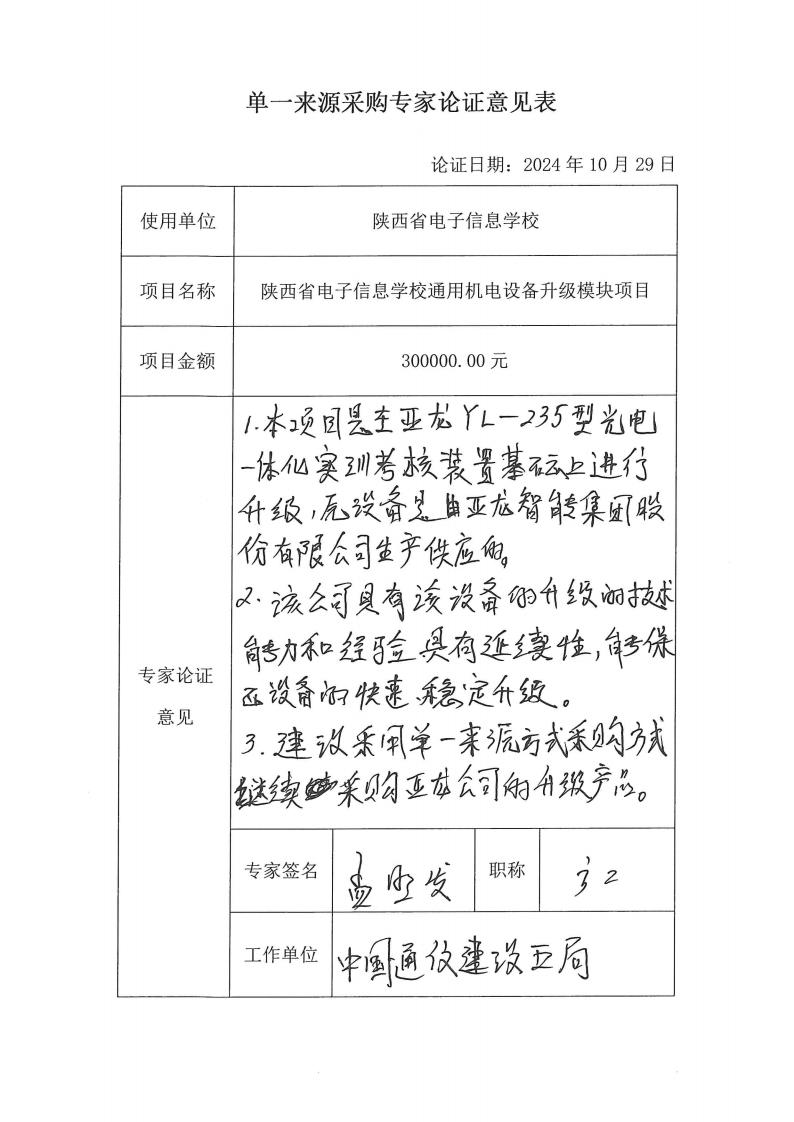 单一来源采购专家论证意见表
论证日期：2024 年 10 月 29 日
使用单位
陕西省电子信息学校
项目名称
陕西省电子信息学校通用机电设备升级模块项目
项目金额
300000.00 元
专家论证
意见
1.本项目是在亚龙YL-235型光电
一体化实训考核装置基础上进行
升级,原设备是由亚龙智能集团股
份有限公司生产供应的。
2.该公司具有该设备的升级的技术
能力和经验具有延续性,能保
证设备的快速稳定升级。
3.建议采用单一来源方式采购方式
继续采购亚龙公司的升级产品。
专家签名
孟明发
职称
高工
工作单位
中国通信建设五局